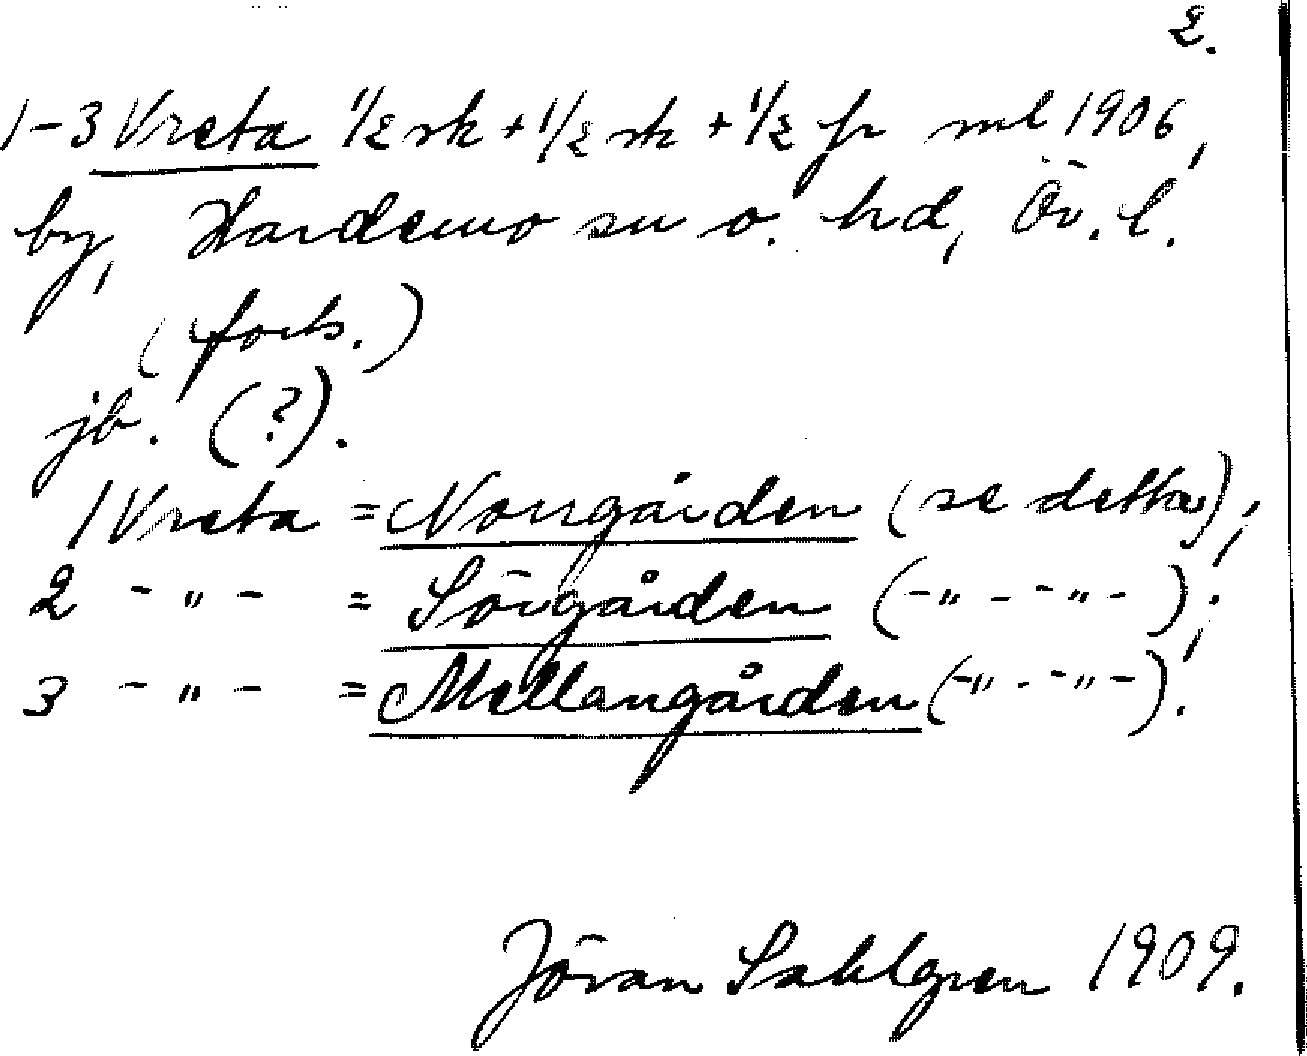 2.
1-3 Vreta 1/2 sk + 1/2 sk + 1/2 fr ml 1906,
by, Hardemo sn o. hd, Ör. l.
(forts.)
jb. (?).
1 Vreta = Norrgården (se detta);
2 -"- = Sörgården (-"- -"-);
3 -"- = Mellangården (-"- -"-).
Jöran Sahlgren 1909.